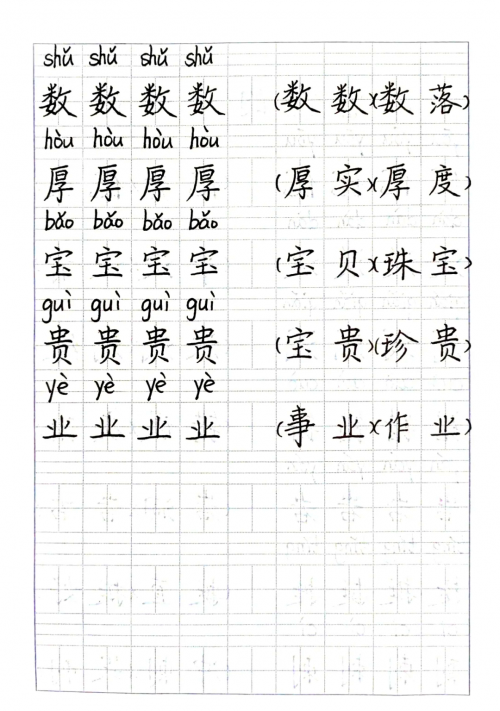 shǔ shǔ shǔ shǔ
数 数 数 数 (数 数)(数 落)
hòu hòu hòu hòu
厚 厚 厚 厚 (厚 实)(厚 度)
bǎo bǎo bǎo bǎo
宝 宝 宝 宝 (宝 贝)(珠 宝)
guì guì guì guì
贵 贵 贵 贵 (宝 贵)(珍 贵)
yè yè yè yè
业 业 业 业 (事 业)(作 业)